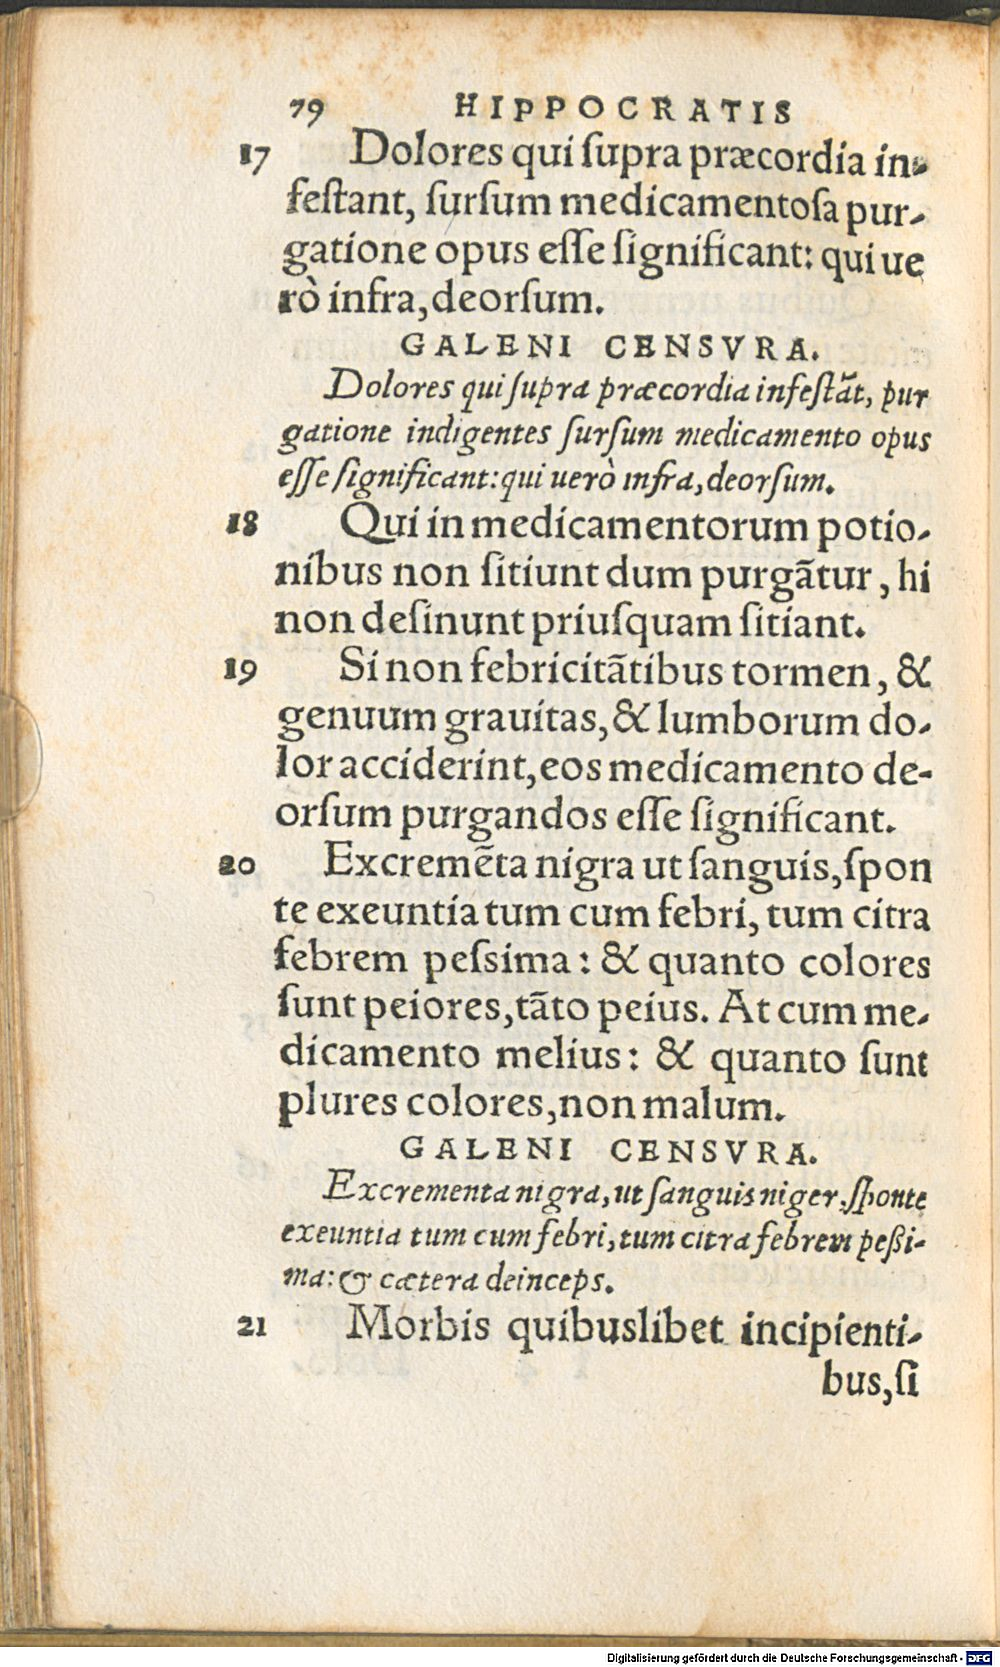 79 HIPPOCRATIS
17 Dolores qui ſupra præcordia in-
feſtant, ſurſum medicamentoſa pur-
gatione opus eſſe ſignificant: qui ue
rò infra, deorſum.
GALENI CENSVRA.
Dolores qui ſupra præcordia infeſtãt, pur
gatione indigentes ſurſum medicamento opus
eſſe ſignificant: qui uerò infra, deorſum.
18 Qui in medicamentorum potio-
nibus non ſitiunt dum purgãtur, hi
non deſinunt priuſquam ſitiant.
19 Si non febricitãtibus tormen, &
genuum grauitas, & lumborum do-
lor acciderint, eos medicamento de-
orſum purgandos eſſe ſignificant.
20 Excremẽta nigra ut ſanguis, ſpon
te exeuntia tum cum febri, tum citra
febrem peſsima: & quanto colores
ſunt peiores, tãto peius. At cum me-
dicamento melius: & quanto ſunt
plures colores, non malum.
GALENI CENSVRA.
Excrementa nigra, ut ſanguis niger, ſponte
exeuntia tum cum febri, tum citra febrem peßi-
ma: & cætera deinceps.
21 Morbis quibuslibet incipienti-
bus, ſi
Digitalisierung gefördert durch die Deutsche Forschungsgemeinschaft - DFG